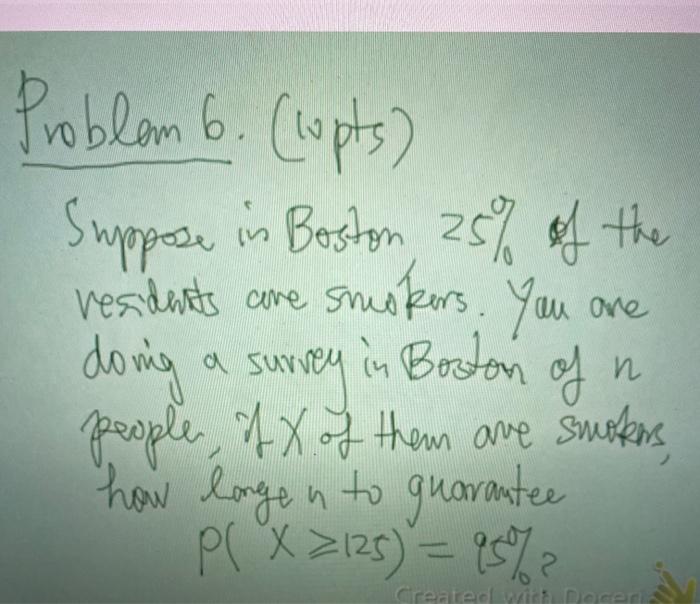 Problem 6. (10 pts)
Suppose in Boston, 25% of the
residents are smokers. You are
doing a survey in Boston of n
people, if X of them are smokers,
how large n to guarantee
P( X ≥ 125) = 95%?
Created with Doceri